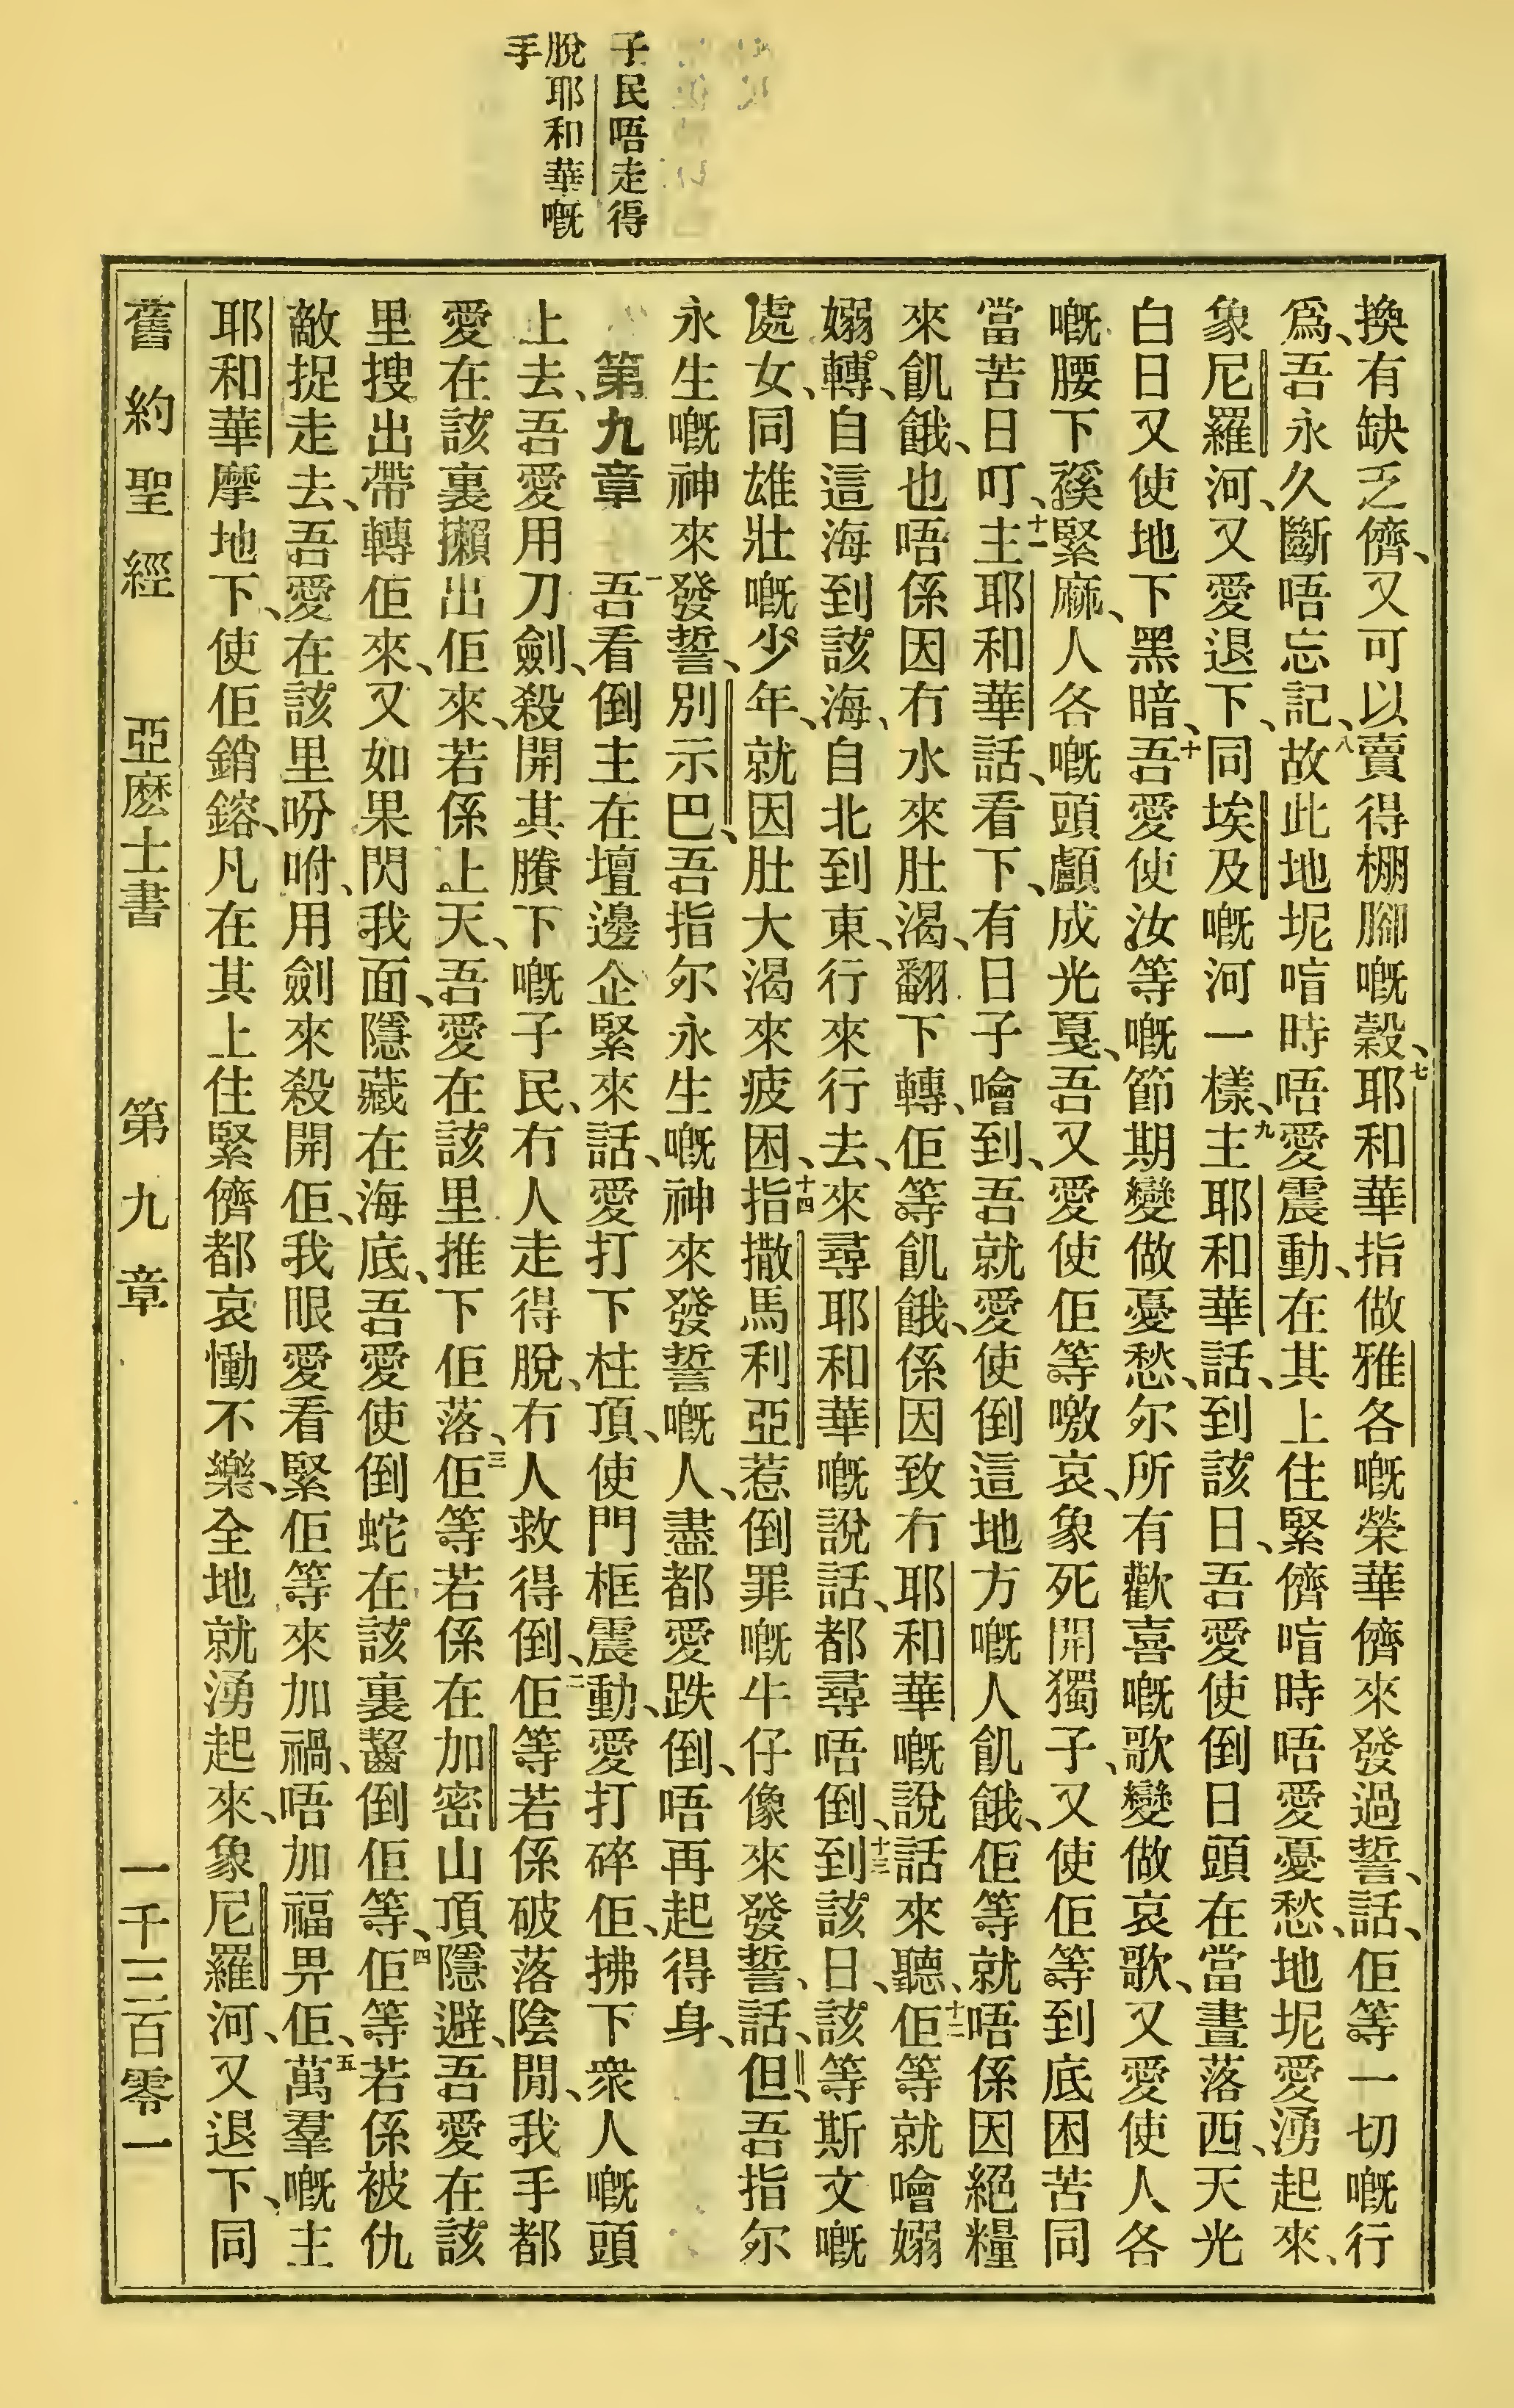 子民唔走得
脫耶和華嘅
手
換有缺乏儕、又可以賣得棚腳嘅穀、七耶和華指做雅各嘅榮華儕來發過誓、話、佢等一切嘅行
爲、吾永久斷唔忘記、八故此地坭㫘時唔愛震動、在其上住緊儕㫘時唔愛憂愁、地坭愛湧起來、
象尼羅河、又愛退下、同埃及嘅河一樣、九主耶和華話、到該日、吾愛使倒日頭在當晝落西、天光
白日又使地下黑暗、十吾愛使汝等嘅節期變做憂愁、尔所有歡喜嘅歌變做哀歌、又愛使人各
嘅腰下緊麻、人各嘅頭顱成光戛、吾又愛使佢等噭哀、象死開獨子、又使佢等到底困苦同
當苦日叮、十一主耶和華話、看下、有日子噲到、吾就愛使倒這地方嘅人飢餓、佢等就唔係因絕糧
來飢餓、也唔係因冇水來肚渴、翻下轉、佢等飢餓、係因致冇耶和華嘅說話來聽、十二佢等就噲嫋
嫋轉、自這海到該海、自北到東、行來行去、來尋耶和華嘅說話、都尋唔倒、十三到該日、該等斯文嘅
處女、同雄壯嘅少年、就因肚大渴來疲困、十四指撒馬利亞惹倒罪嘅牛仔像來發誓、話、但吾指尔
永生嘅神來發誓、別示巴、吾指尔永生嘅神來發誓嘅人、盡都愛跌倒、唔再起得身、
第九章 一吾看倒主在壇邊企緊來話、愛打下柱頂、使門框震動、愛打碎佢、拂下衆人嘅頭
上去、吾愛用刀劍、殺開其賸下嘅子民、冇人走得脫、冇人救得倒、二佢等若係破落陰間、我手都
愛在該裏攋出佢來、若係上天、吾愛在該里推下佢落、三佢等若係在加密山頂隱避、吾愛在該
里搜出帶轉佢來、又如果閃我面、隱藏在海底、吾愛使倒蛇在該裏齧倒佢等、四佢等若係被仇
敵捉走去、吾愛在該里吩咐、用劍來殺開佢、我眼愛看緊佢等來加禍、唔加福畀佢、五萬羣嘅主
耶和華摩地下、使佢銷鎔、凡在其上住緊儕都哀慟不樂、全地就湧起來、象尼羅河、又退下、同
舊約聖經 亞麽士書 第九章 一千三百零一